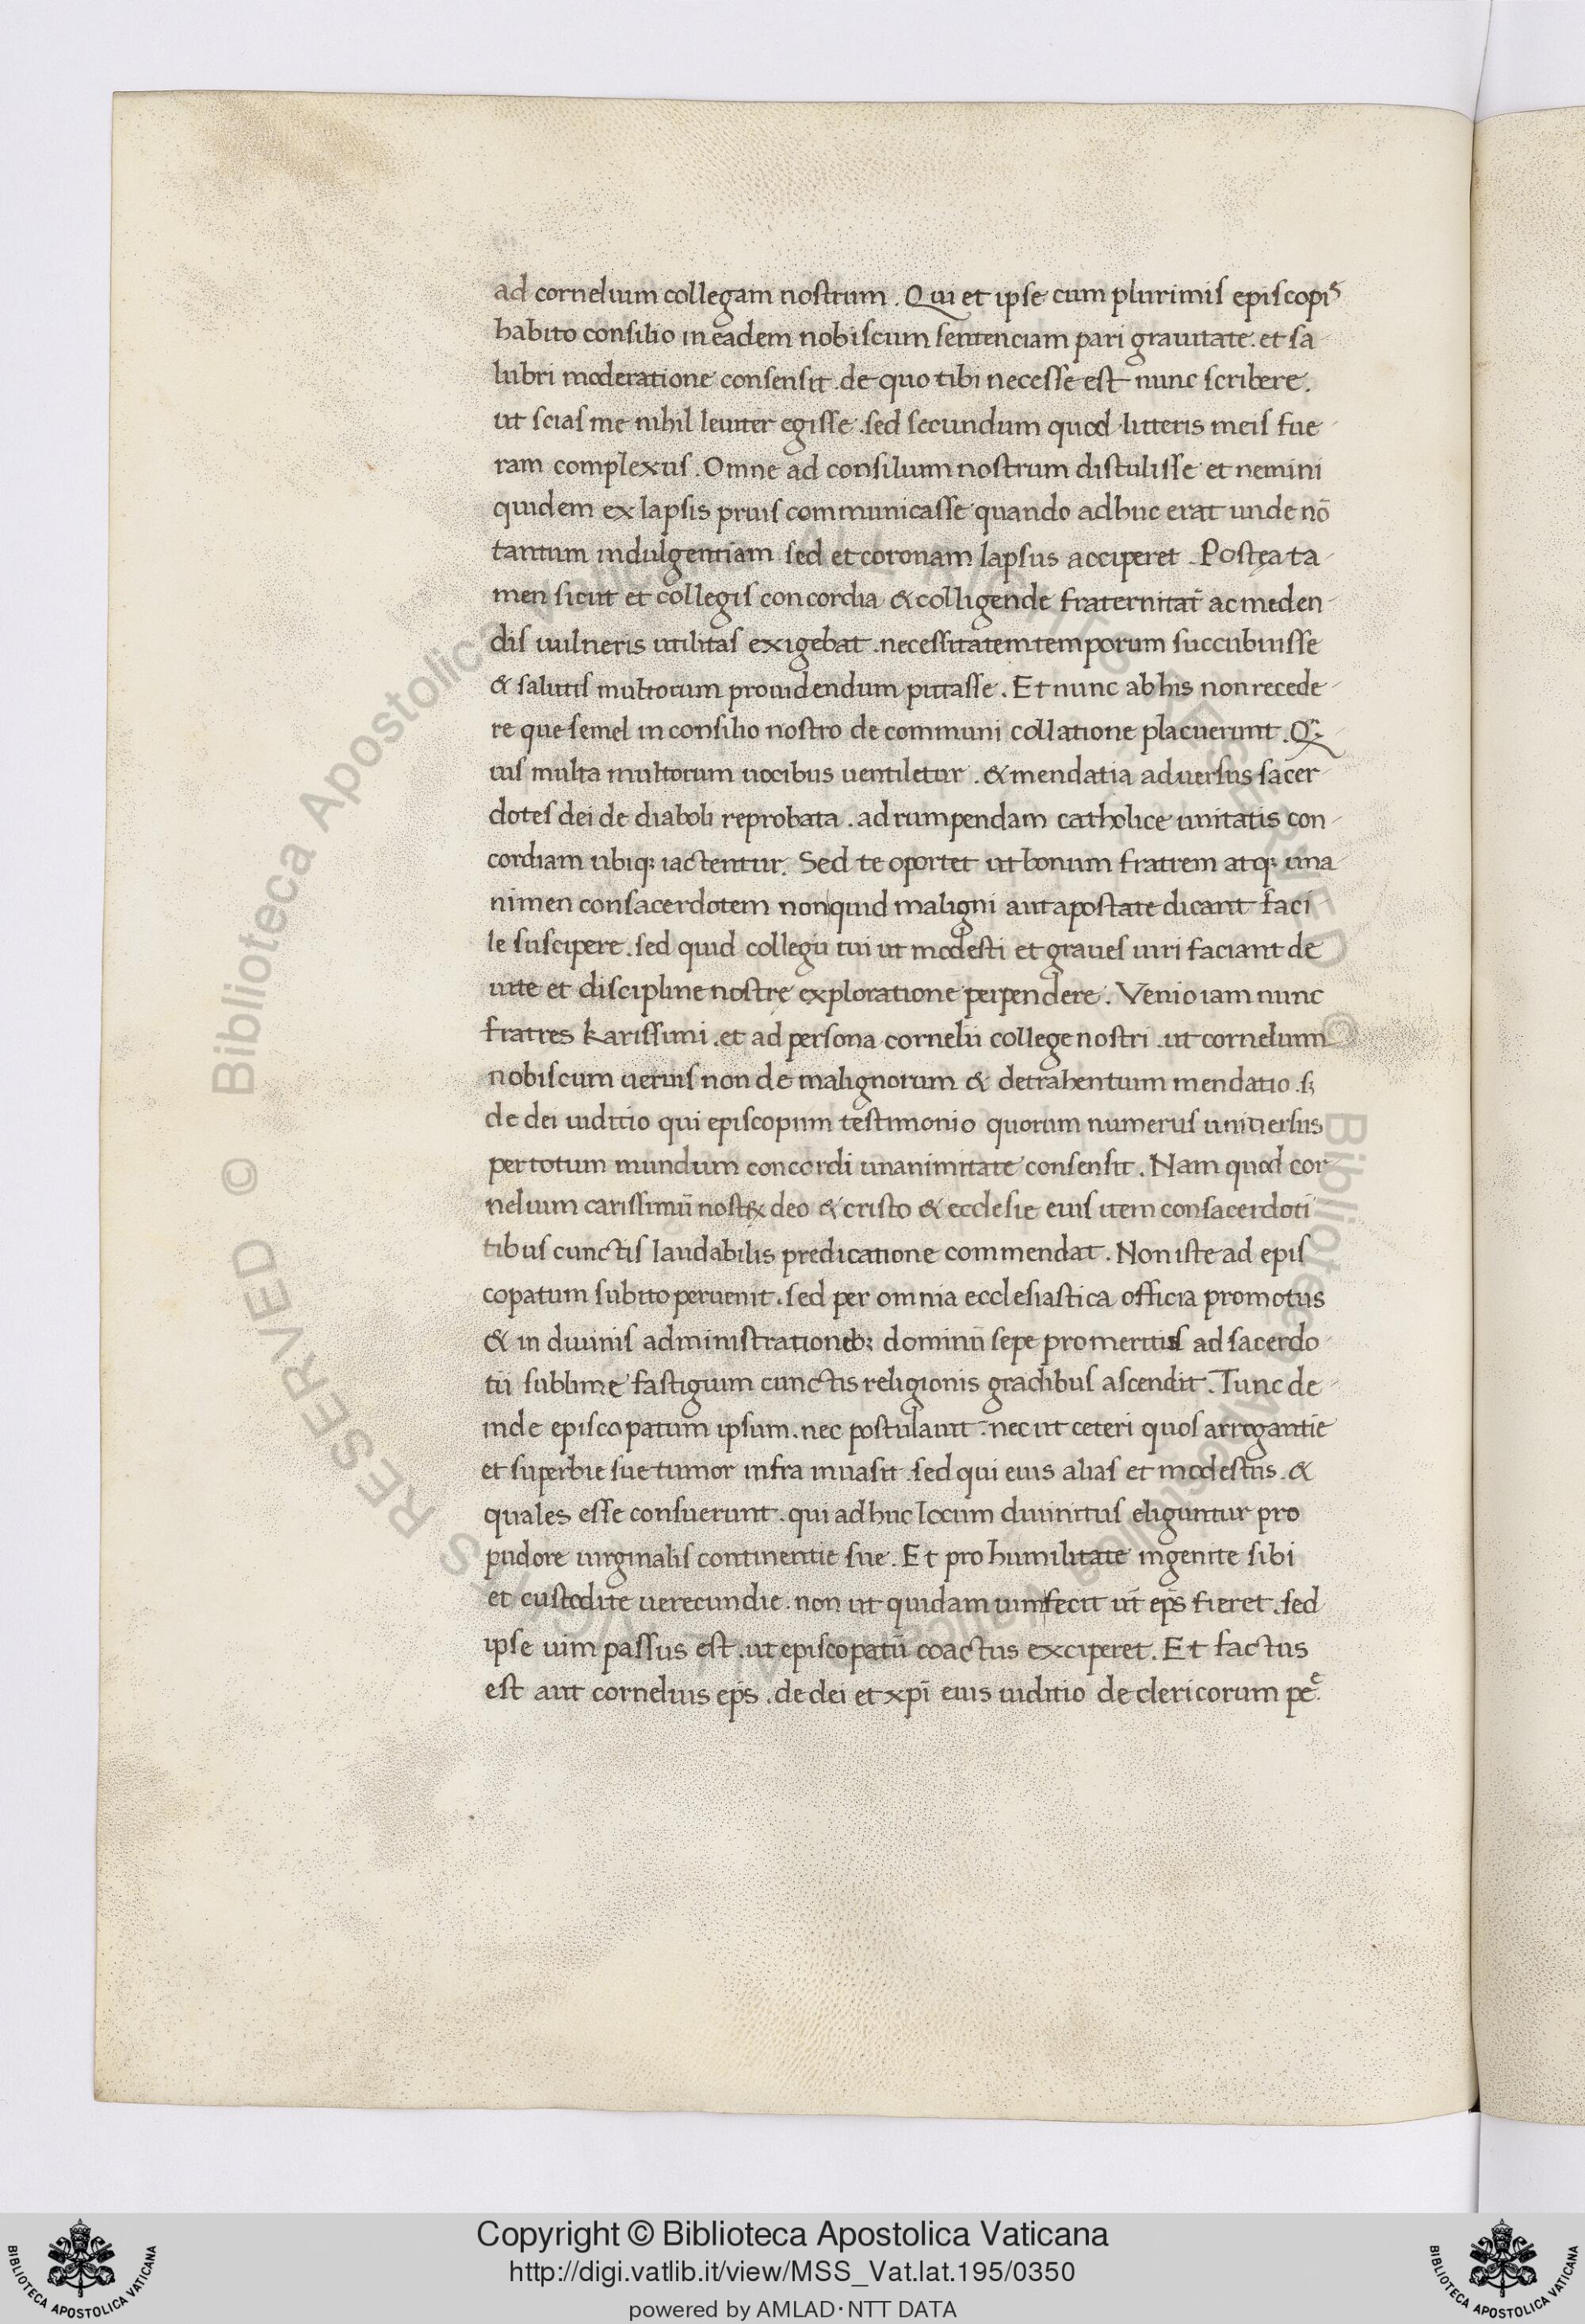 ad cornelium collegam nostrum . Qui et ipse cum plurimis episcopis
habito consilio in eadem nobiscum sentenciam pari grauitate . et sa
lubri moderatione consensit . de quo tibi necesse est nunc scribere .
ut scias me nihil leuiter egisse . sed secundum quod litteris meis fue
ram complexus . Omne ad consilium nostrum distulisse et nemini
quidem ex lapsis prius communicasse quando adhuc erat unde nō
tantum indulgentiam sed et coronam lapsus acciperet . Postęa ta
men sicut et collegis concordia & colligende fraternitat̄ ac meden
dis uulneris utilitas exigebat . necessitatem temporum succubuisse
& salutis multorum prouidendum putasse . Et nunc ab his non recede
re que semel in consilio nostro de communi collatione placuerunt . Q̃
uis multa multorum uocibus uentiletur . & mendatia aduersus sacer
dotes dei de diaboli reprobata . ad rumpendam catholice unitatis con
cordiam ubiq; iactentur . Sed te oportet ut bonum fratrem atq; una
nimen consacerdotem non quid maligni aut apostate dicant faci
le suscipere . sed quid collegii tui ut modesti et graues uiri faciant de
uite et discipline nostrę exploratione perpendere . Venio iam nunc
fratres karissimi . et ad persona cornelii college nostri . ut cornelium
nobiscum uerius non de malignorum & detrahentium mendatio . s;
de dei iuditio qui episcopum testimonio quorum numerus uniuersus
per totum mundum concordi unanimitate consensit . Nam quod cor
nelium carissimū nostꝝ deo & cristo & ecclesie eius item consacerdoti
tibus cunctis laudabilis predicatione commendat . Non iste ad epis
copatum subito peruenit . sed per omnia ecclesiastica officia promotus
& in diuinis administrationib; dominū sepe promeritis ad sacerdo
tii sublime fastigium cunctis religionis gradibus ascendit . Tunc de
inde episcopatum ipsum . nec postulauit . nec ut ceteri quos arrogantie
et superbie sue tumor infra inuasit . sed qui eius alias et modestus . &
quales esse consuerunt . qui adhuc locum diuinitus eliguntur pro
pudore uirginalis continentie sue . Et pro humilitate ingenite sibi
et custodite uerecundie . non ut quidam uim fecit ut ep̄s fieret . sed
ipse uim passus est . ut episcopatū coactus exciperet . Et factus
est aut cornelius ep̄s . de dei et xpī eius iuditio de clericorum pe
Copyright © Biblioteca Apostolica Vaticana
http://digi.vatlib.it/view/MSS_Vat.lat.195/0350
powered by AMLAD·NTT DATA
BIBLIOTECA APOSTOLICA VATICANA
BIBLIOTECA APOSTOLICA VATICANA